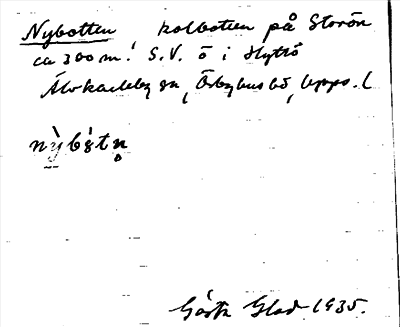 Nybotten, kolbotten på Storön
ca 300 m. S.V. ö i Hyttö
Älvkarleby sn, Örbyhus hd, Upps. l
nỳbòtn̥
Gösta Glad 1935.